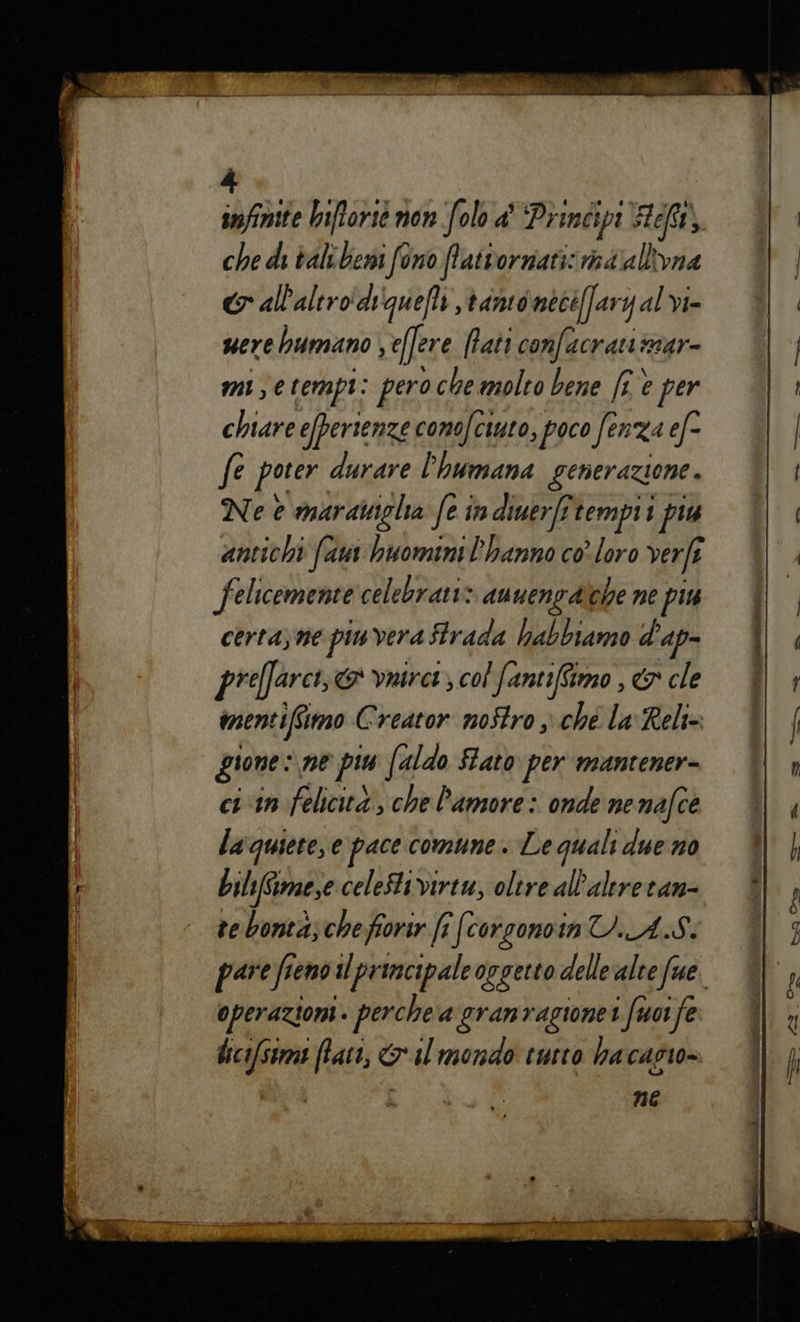 4
infinite historie non solo a' Principi stessi,
che di tali beni sono stati ornati: ma all'vna
& all'altro di questi, tanto necessarij al vi-
uere humano, essere stati consacrati mar-
mi, e tempi: pero che molto bene si è per
chiare esperienze conosciuto, poco senza es-
se poter durare l'humana generazione.
Ne è marauiglia se in diuersi tempi i piu
antichi saui huomini l'hanno co' loro versi
felicemente celebrati: auuenga che ne piu
certa, ne piu vera strada habbiamo d'ap-
pressarci, & vnirci, col santissimo, & cle
mentissimo Creator nostro, che la Reli-
gione: ne piu saldo stato per mantener-
ci in felicità, che l'amore: onde ne nasce
la quiete, e pace comune. Le quali due no
bilissime, e celesti virtu, oltre all'altre tan-
te bontà, che fiorir si scorgono in V. A. S.
pare sieno il principale oggetto delle alte sue
operazioni. perche a gran ragione i suoi fe
licissimi stati, & il mondo tutto ha cagio-
ne